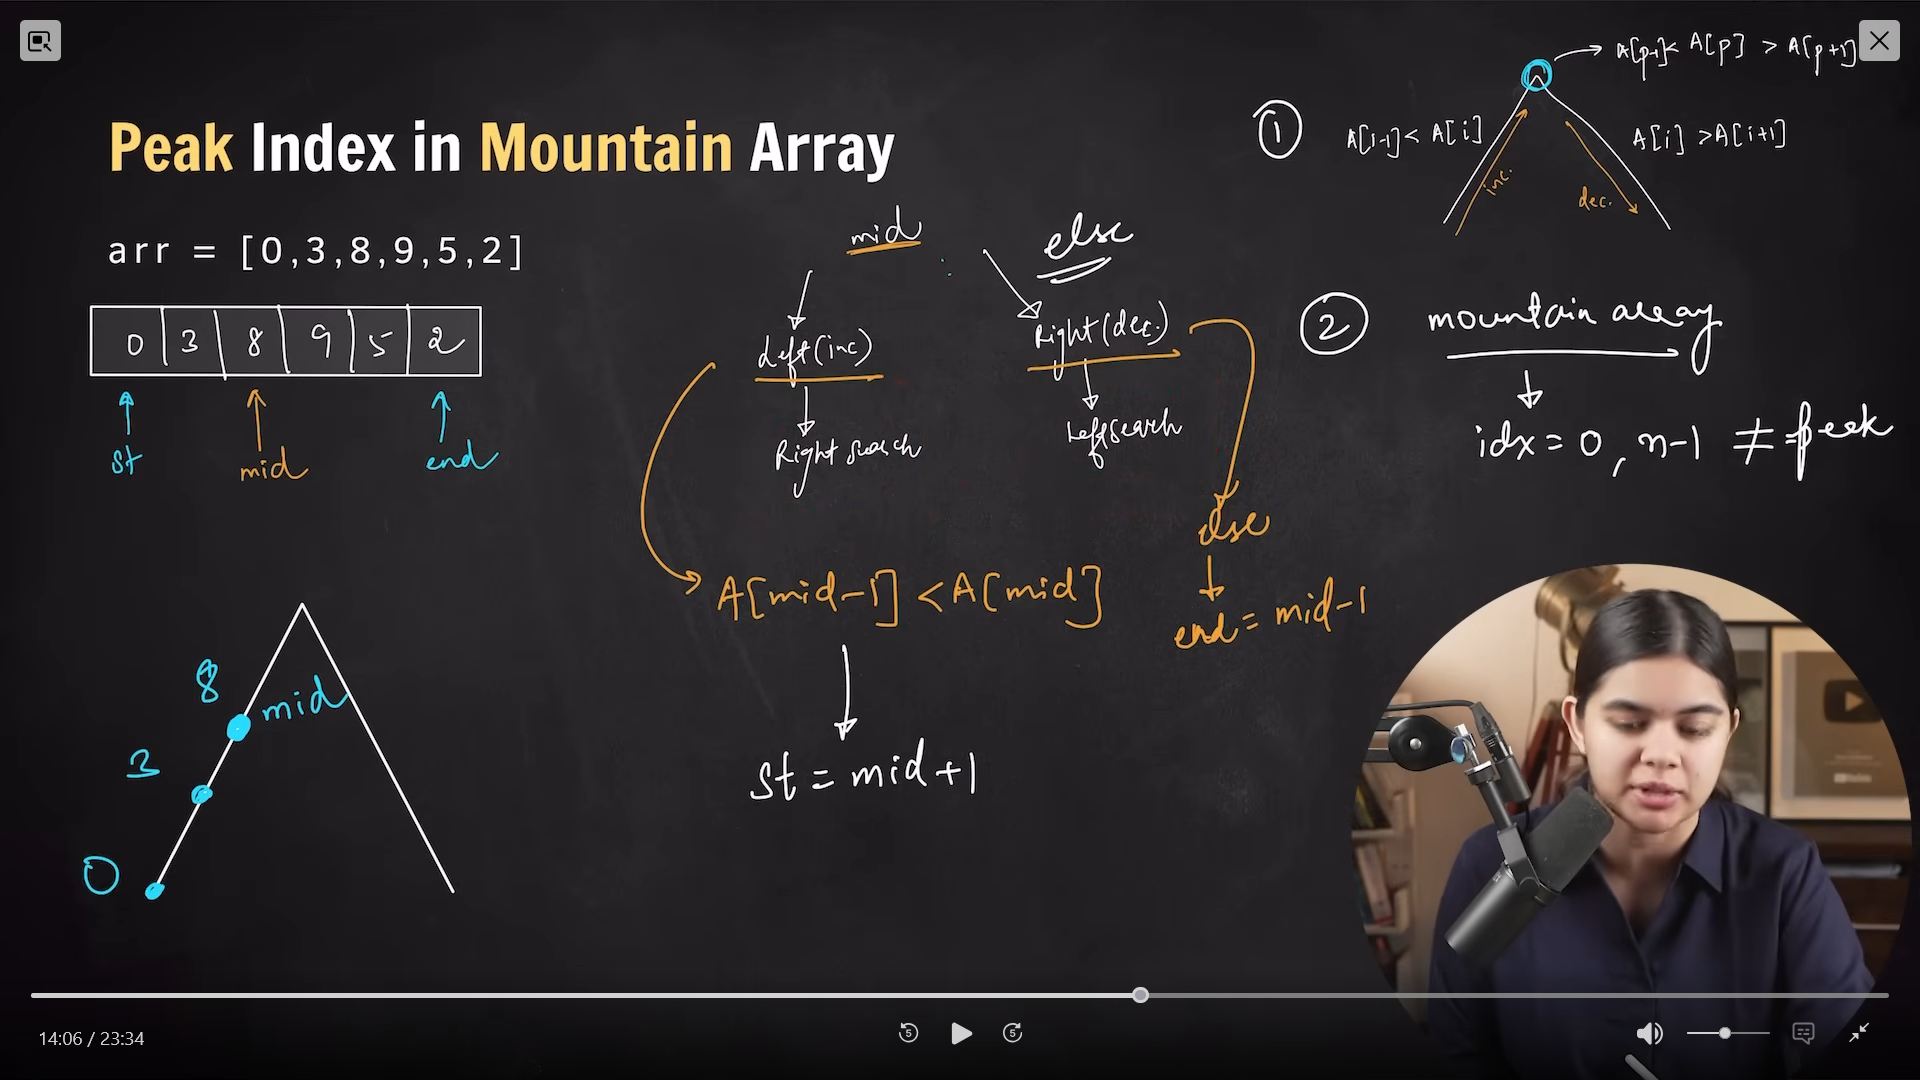 Peak Index in Mountain Array
arr = [0,3,8,9,5,2]
0 3 8 9 5 2
st mid end
8 mid
3
0
mid
else
Left (inc)
Right (dec.)
Right search
Left search
A[mid-1] < A[mid]
st = mid+1
else
end = mid-1
A[p-1] < A[p] > A[p+1]
1
A[i-1] < A[i]
A[i] > A[i+1]
inc.
dec.
2 mountain array
idx = 0, n-1 ≠ peek
14:06 / 23:34
5
5